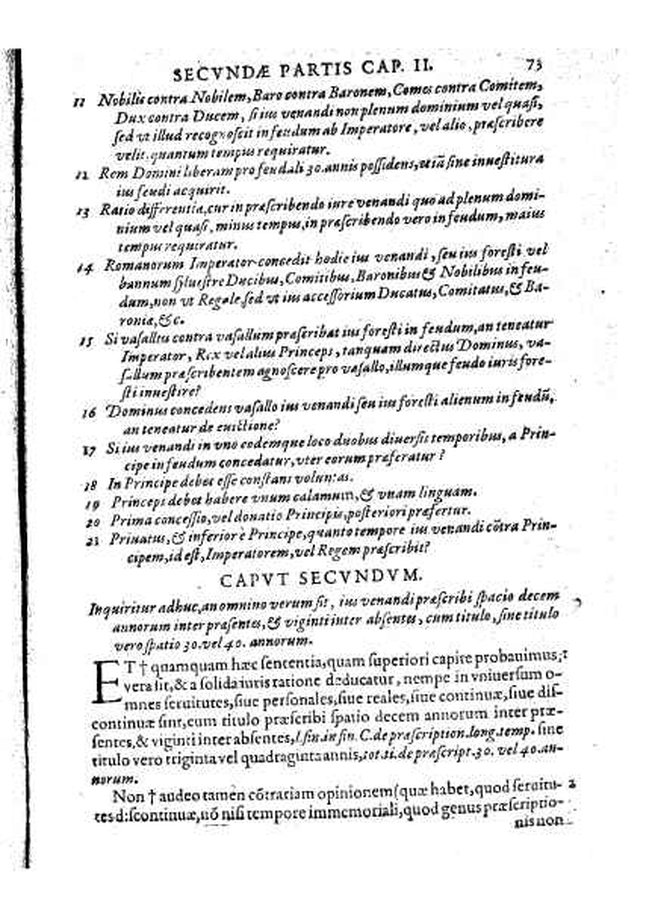 SECVNDÆ PARTIS CAP. II. 73
11 Nobilis contra Nobilem, Baro contra Baronem, Comes contra Comitem,
Dux contra Ducem, si ius venandi non plenum dominium vel quasi,
sed vt illud recognoscit in feudum ab Imperatore, vel alio, præscribere
velit, quantum tempus requiratur.
12 Rem Domini liberam pro feudali 30. annis possidens, etiã sine inuestitura
ius feudi acquirit.
13 Ratio differentiæ, cur in præscribendo iure venandi quo ad plenum domi-
nium vel quasi, minus tempus, in præscribendo vero in feudum, maius
tempus requiratur.
14 Romanorum Imperator concedit hodie ius venandi, seu ius foresti vel
bannum syluestre Ducibus, Comitibus, Baronibus & Nobilibus in feu-
dum, non vt Regale sed vt ius accessorium Ducatus, Comitatus, & Ba-
roniæ, &c.
15 Si vasallus contra vasallum præscribat ius foresti in feudum, an teneatur
Imperator, Rex vel alius Princeps, tanquam directus Dominus, va-
sallum præscribentem agnoscere pro vasallo, illumque feudo iuris fore-
sti inuestire?
16 Dominus concedens vasallo ius venandi seu ius foresti alienum in feudũ,
an teneatur de euictione?
17 Si ius venandi in vno eodemque loco duobus diuersis temporibus, a Prin-
cipe in feudum concedatur, vter eorum præferatur?
18 In Principe debet esse constans voluntas.
19 Princeps debet habere vnum calamum, & vnam linguam.
20 Prima concessio, vel donatio Principis, posteriori præfertur.
21 Priuatus, & inferior è Principe, quanto tempore ius venandi cõtra Prin-
cipem, id est, Imperatorem, vel Regem præscribit?
CAPVT SECVNDVM.
Inquiritur adhuc, an omnino verum sit, ius venandi præscribi spacio decem
annorum inter præsentes, & viginti inter absentes, cum titulo, sine titulo
vero spatio 30. vel 40. annorum.
ET † quamquam hæc sententia, quam superiori capite probauimus, 1
vera sit, & a solida iuris ratione deducatur, nempe in vniuersum o-
mnes seruitutes, siue personales, siue reales, siue continuæ, siue dis-
continuæ sint, cum titulo præscribi spatio decem annorum inter præ-
sentes, & viginti inter absentes, l. fin. in fin. C. de præscription. long. temp. sine
titulo vero triginta vel quadraginta annis, tot. ti. de præscript. 30. vel 40. an-
norum.
Non † audeo tamen cõtrariam opinionem (quæ habet, quod seruitu- 2
tes discontinuæ, nõ nisi tempore immemoriali, quod genus præscriptio-
nis non